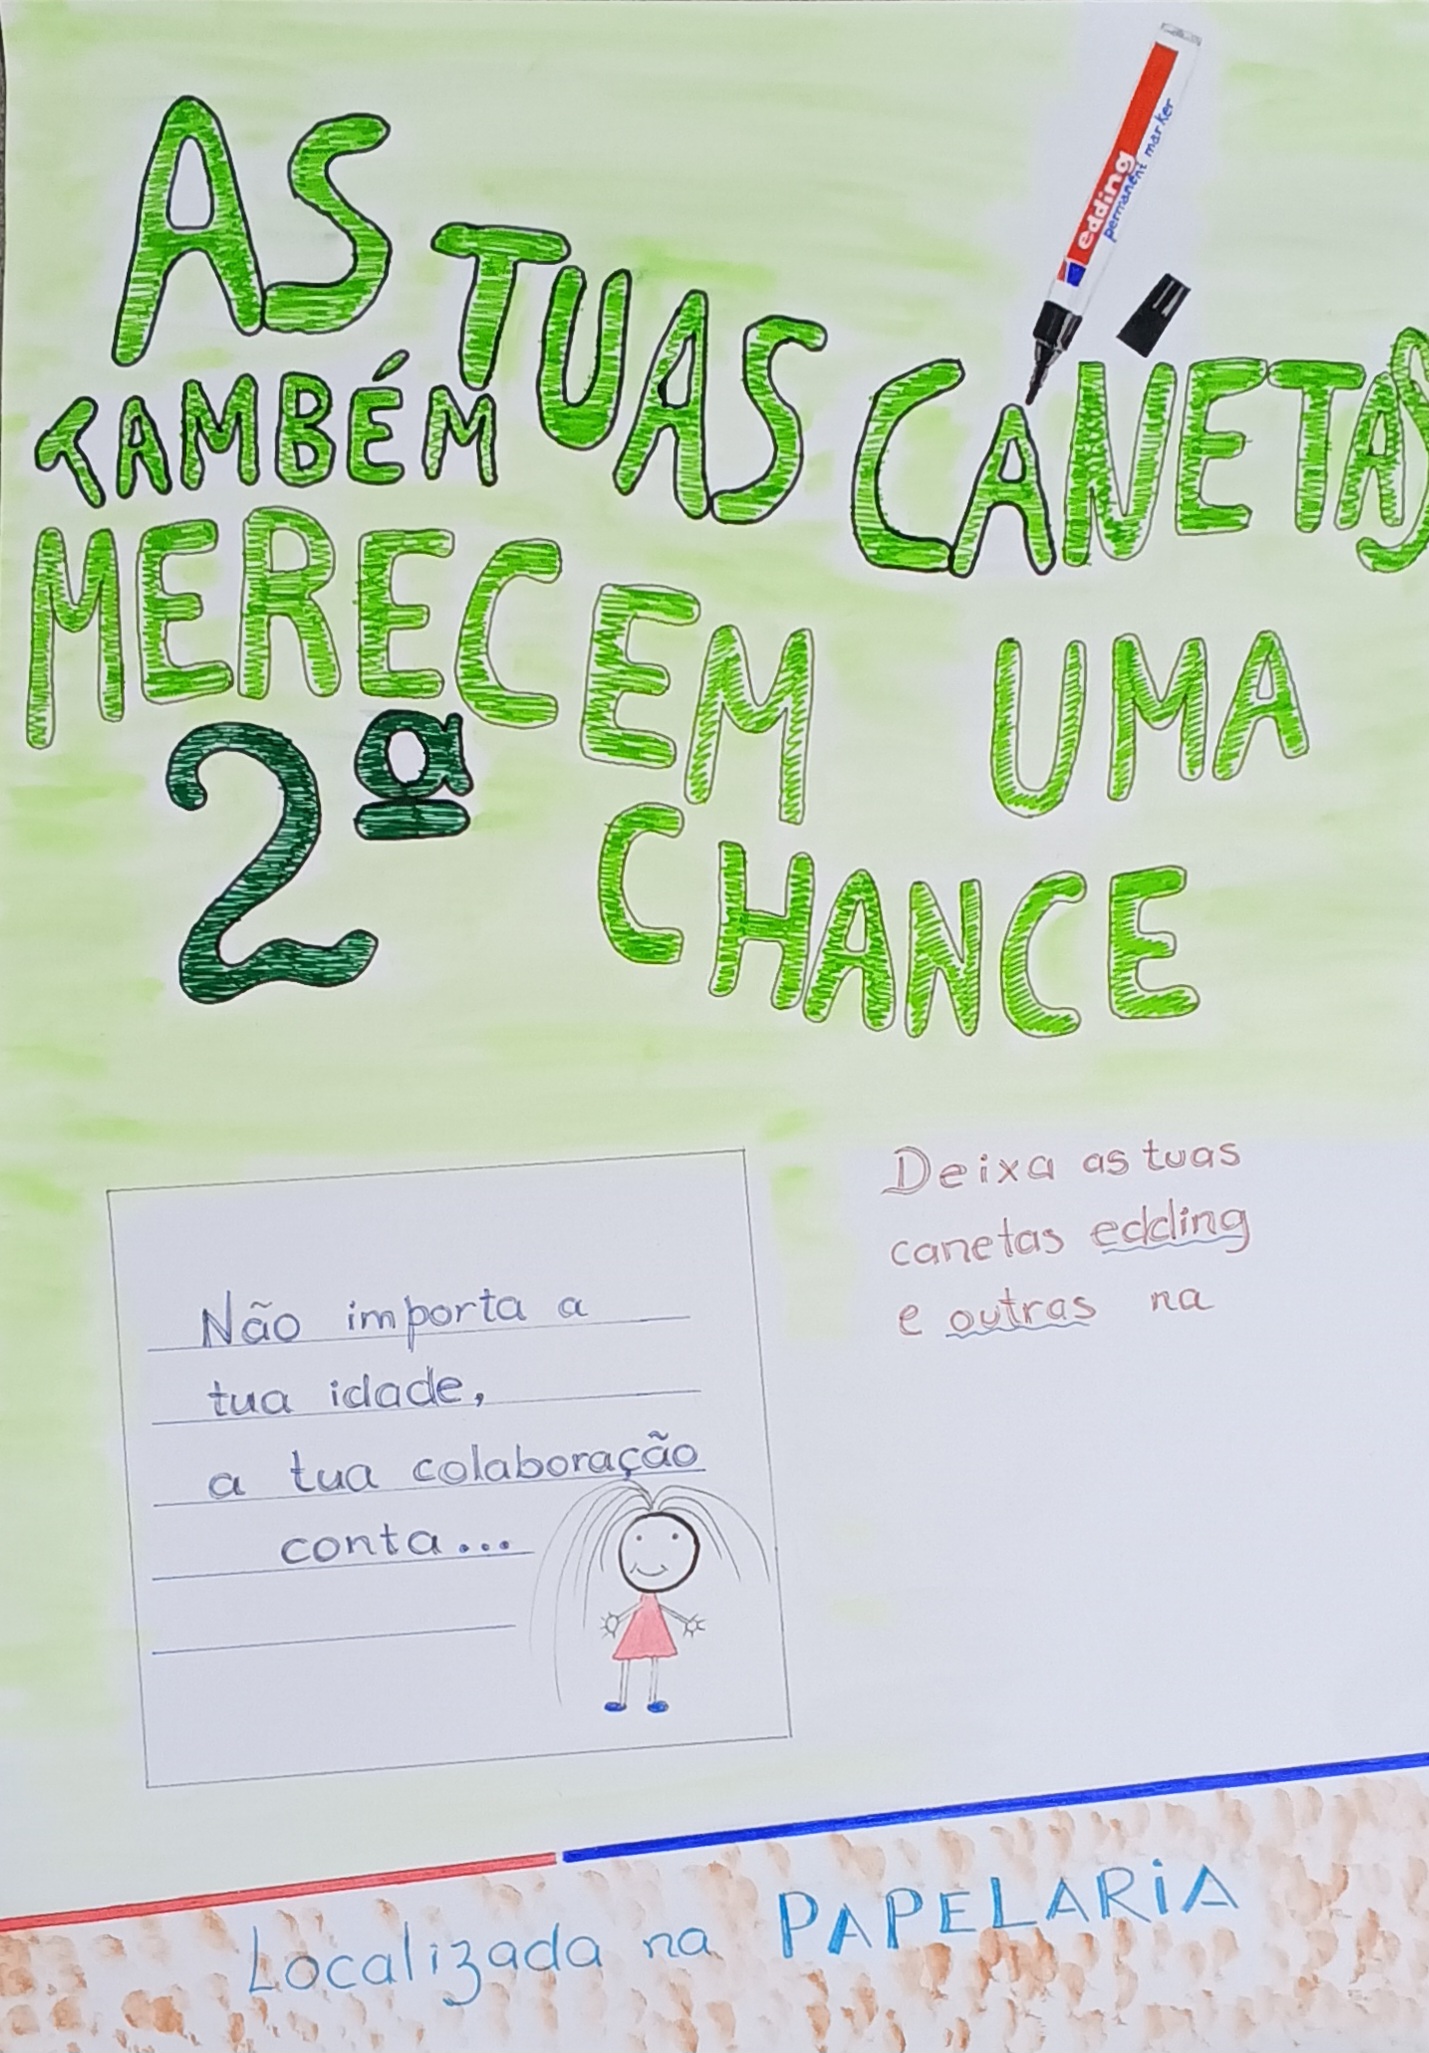 AS TUAS CANETAS
TAMBÉM
MERECEM UMA
2ª CHANCE
edding
permanent marker
Não importa a
tua idade,
a tua colaboração
conta...
Deixa as tuas
canetas edding
e outras na
Localizada na PAPELARiA